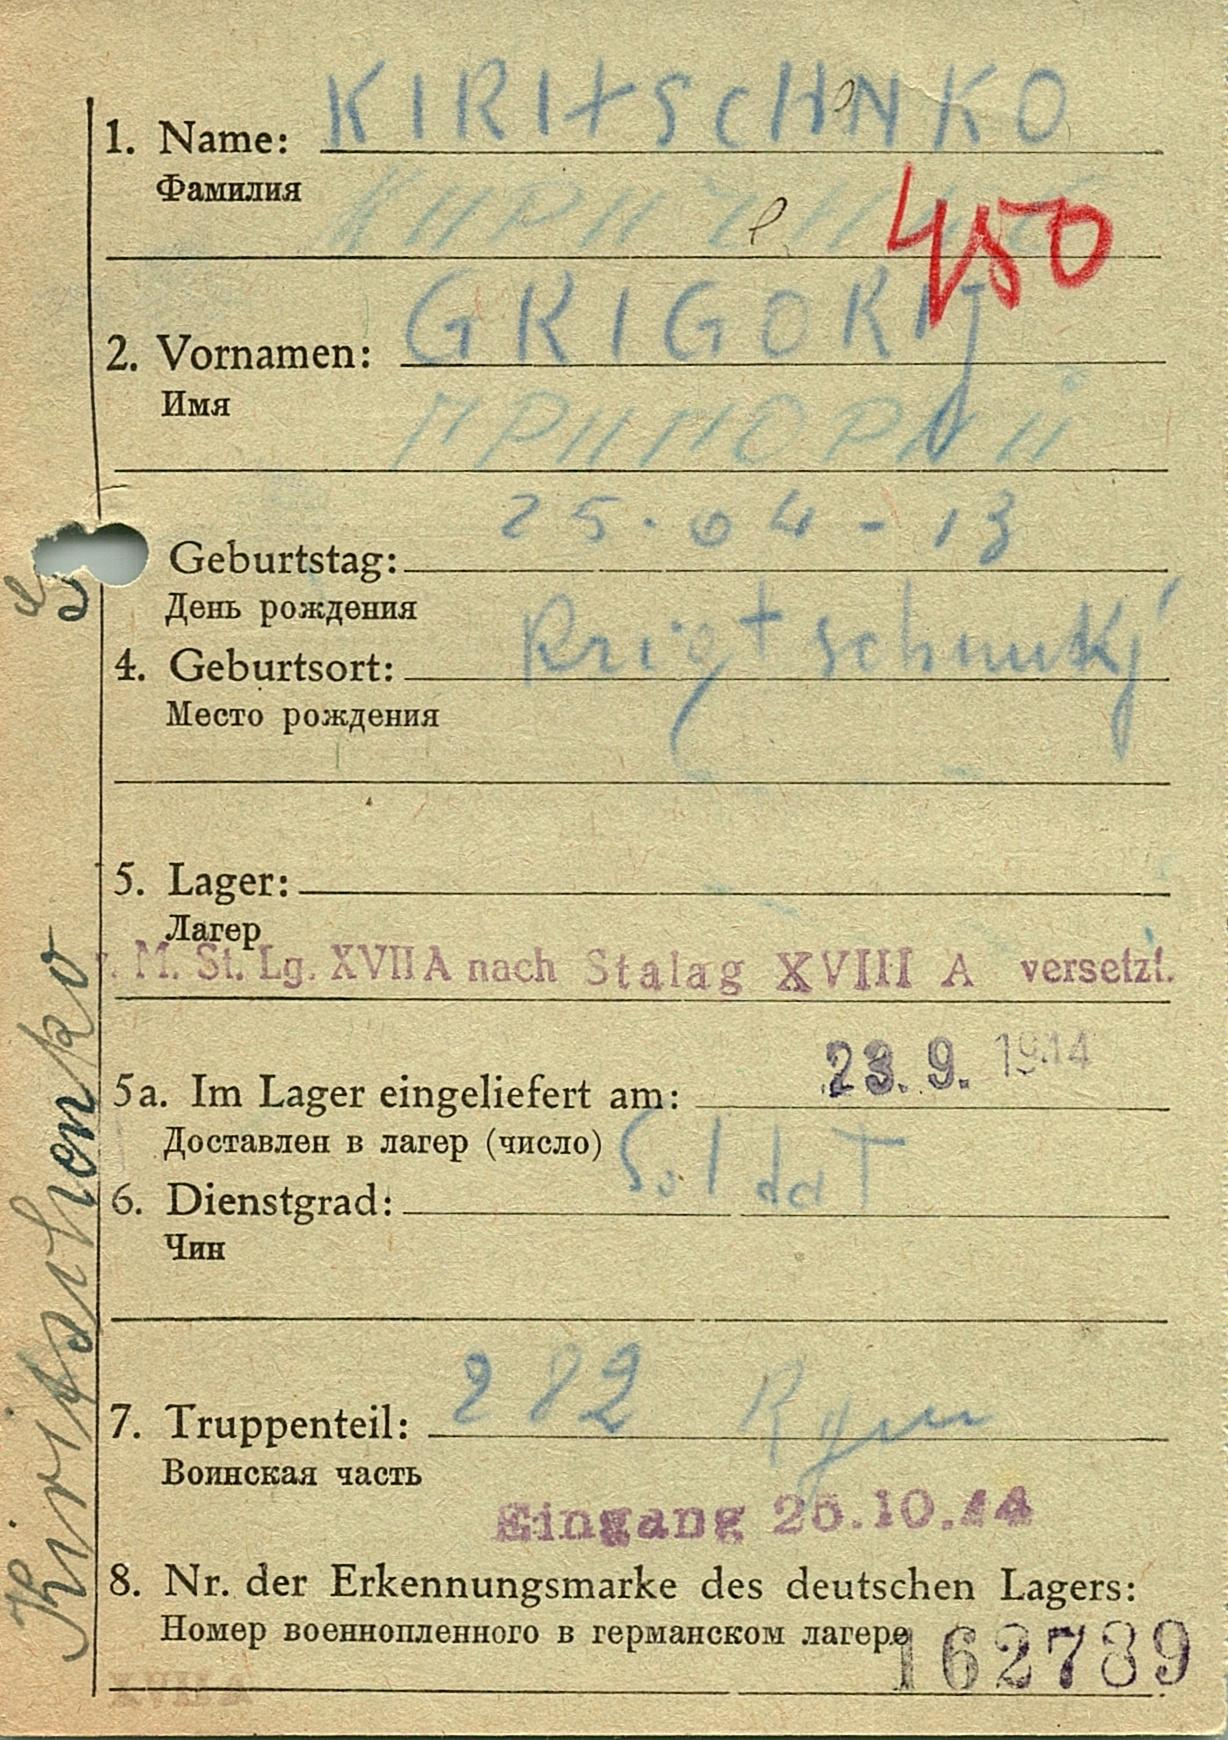 1. Name: KIRITSCHNKO
e
Фамилия
КИРИЧН
e
450
2. Vornamen: GRIGORIJ
Имя
25.04-13
Geburtstag:
День рождения
4. Geburtsort:
Место рождения
5. Lager:
Лагер
v. M. St. Lg. XVII A nach Stalag XVIII A versetzt.
23. 9. 1944
5a. Im Lager eingeliefert am:
Доставлен в лагер (число)
6. Dienstgrad: Soldat
Чин
7. Truppenteil: 282 Rgm
Воинская часть
Eingang 25.10.44
8. Nr. der Erkennungsmarke des deutschen Lagers:
Номер военнопленного в германском лагере
162789
XVII A
Kiritschenko